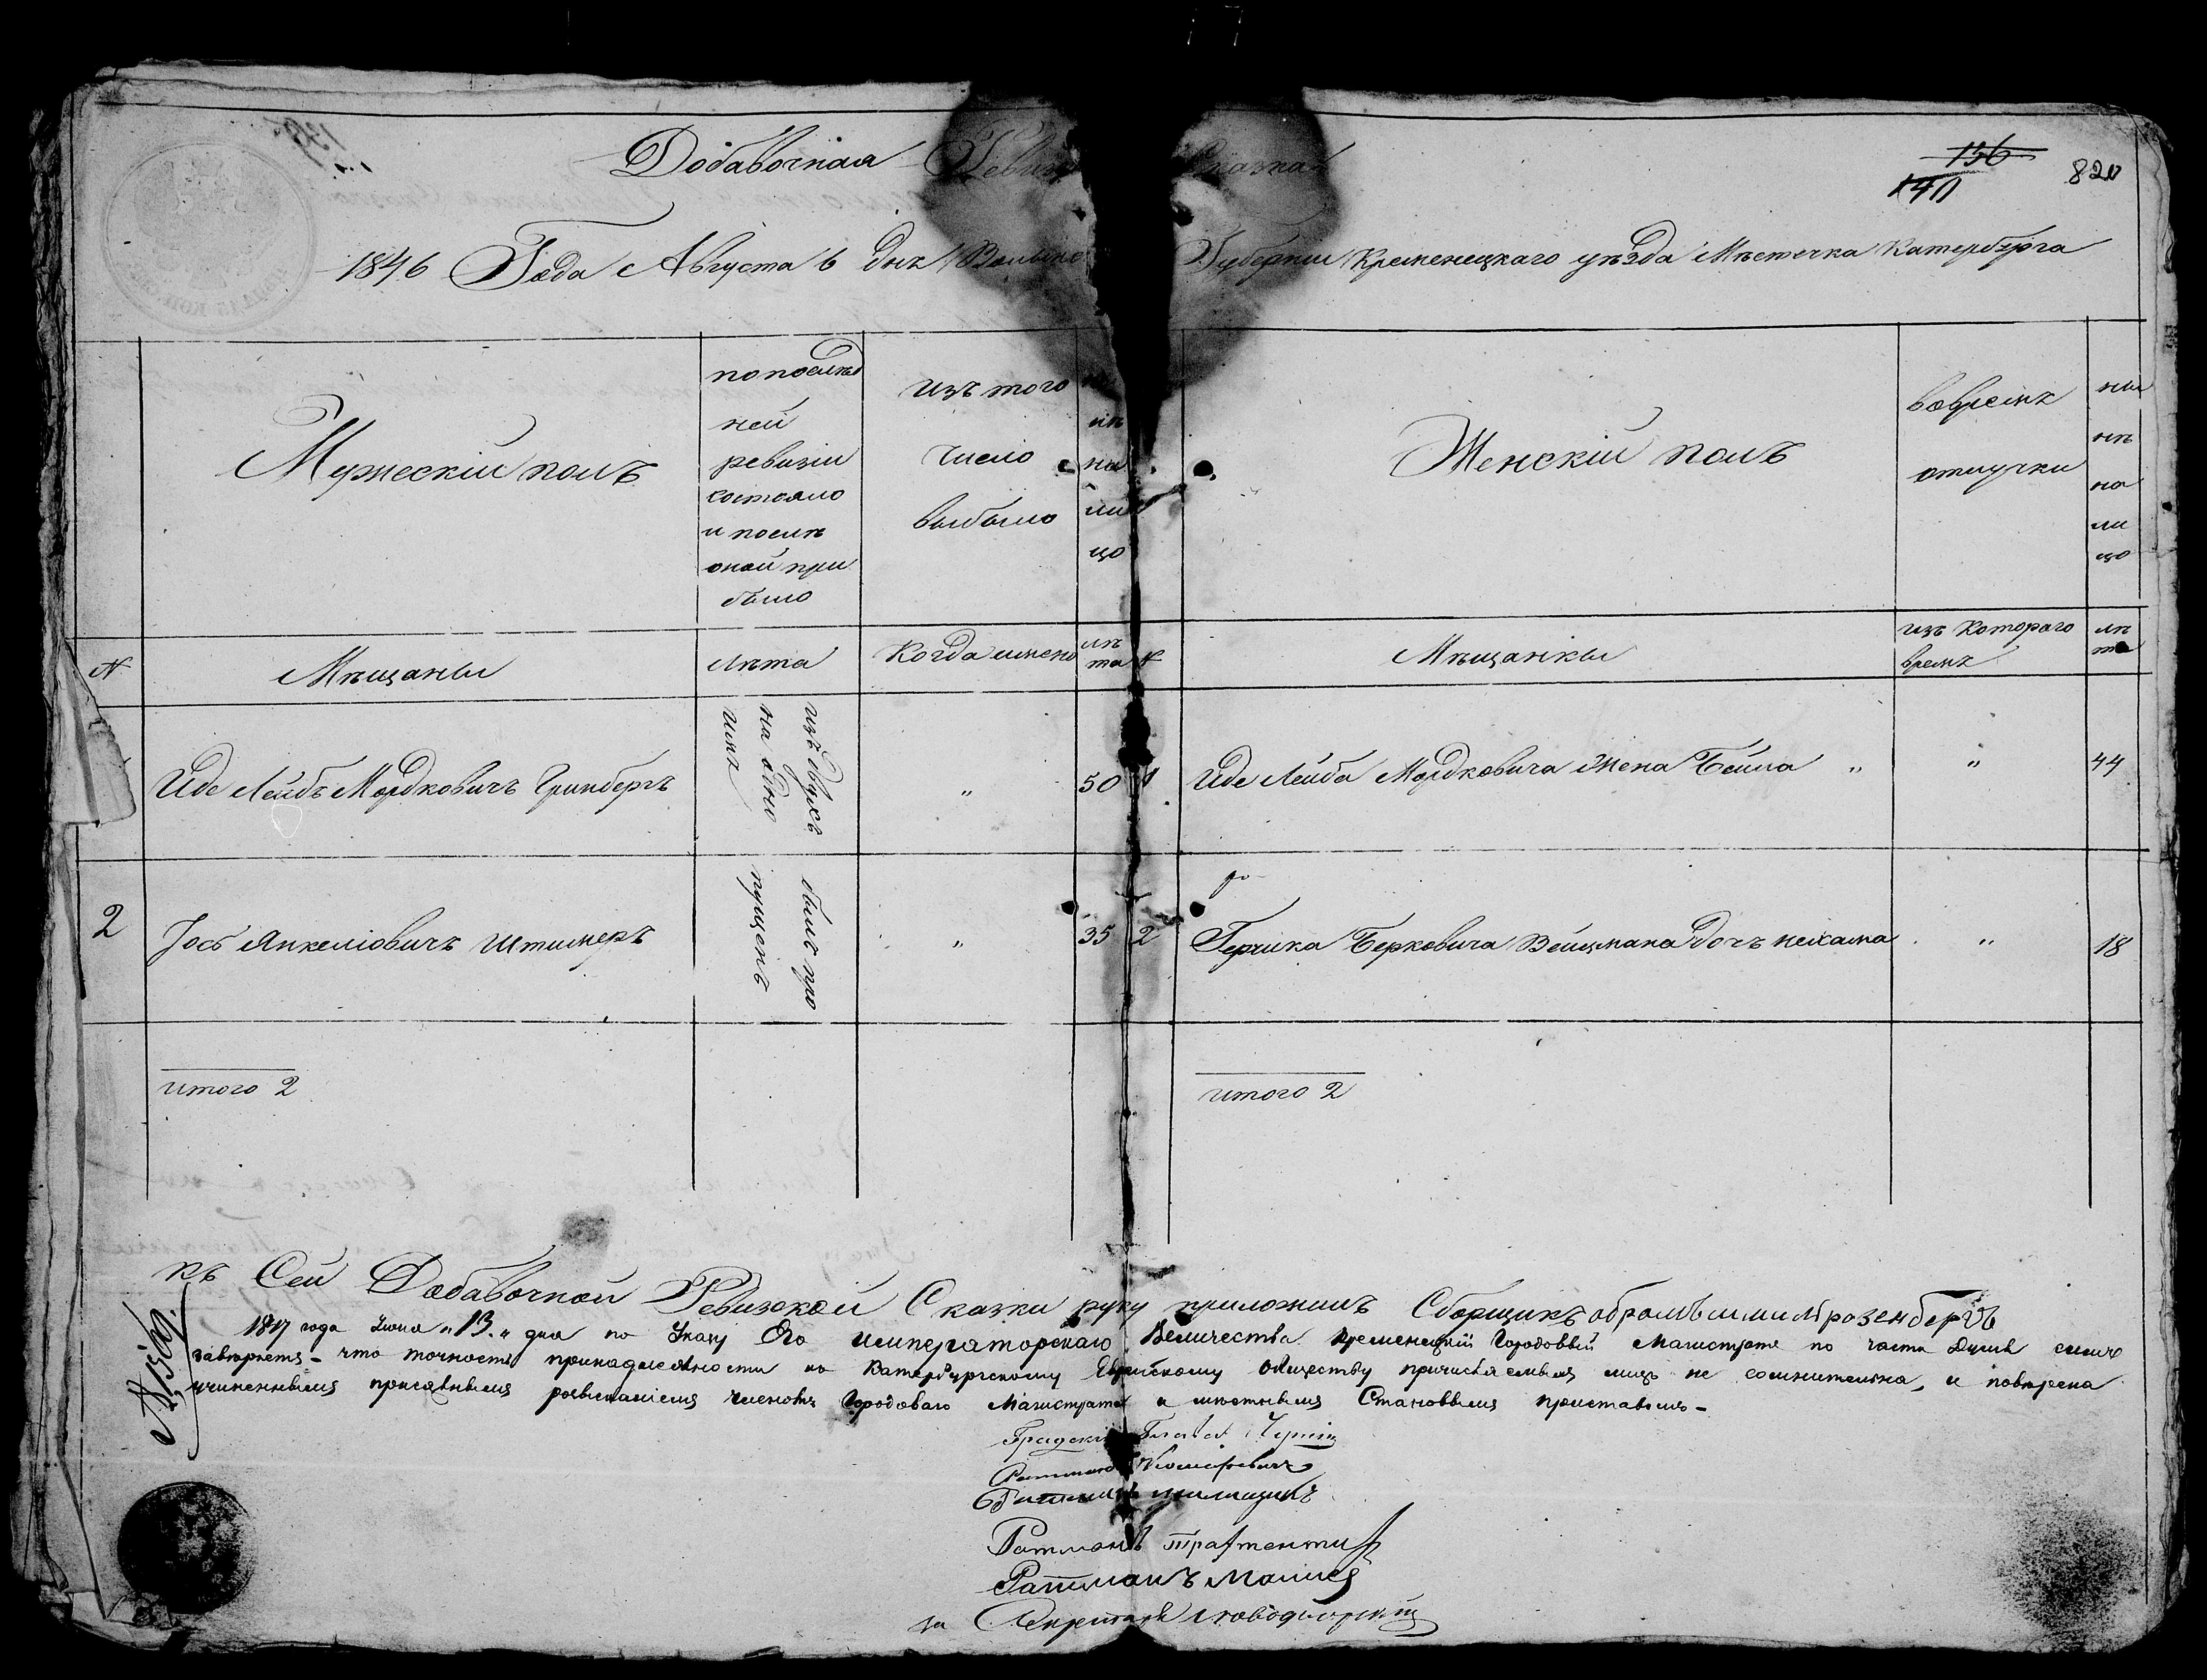 Добавочная Ревиз сказка
136
140
820
1846 Года Августа 6 дня Волынс Губернии Кременецкаго уѣзда Мѣстечка Катербурга
Мужескій полъ
по послѣд
ней
ревизіи
состояло
и послѣ
оной при
было
изъ того
число
выбыло
ны
нѣ
на
ли
цо
Женскій полъ
вовремѣ
отлучки
ны
нѣ
на
ли
цо
N
Мѣщаны
Лѣта
Когда имено
лѣ
та
N
Мѣщанки
изъ котораго
времѣ
лѣ
та
Иде Лейбъ Мордковичъ Гринбергъ
изъ двухъ
на одно
имя
"
50
1
Иде Лейба Мордковича жена Бейла "
"
44
2
Іосъ Янкеліовичъ Штильмеръ
былъ про
пущенъ
"
35
2
Гершка Берковича Вейцмана дочь Нехама
"
18
итого 2
итого 2
къ Сей Добавочной Ревизской Сказки руку приложилъ Сборщикъ розенбергъ
1847 года Іюня „13„ дня по Указу Его императорскаго Величества Кременецкій Городовый Магистратъ по части Душъ симъ
завѣряетъ – что точность принадлежности къ Катербургскому Еврейскому обществу причисляемыхъ лицъ не сомнительна, и повѣрена
учиненнымъ присяжнымъ розысканіемъ членовъ Городоваго Магистрата и мѣстнымъ Становымъ приставомъ –
Градскій Глава
Ратманъ
Ратманъ
Ратманъ
за Секретаря